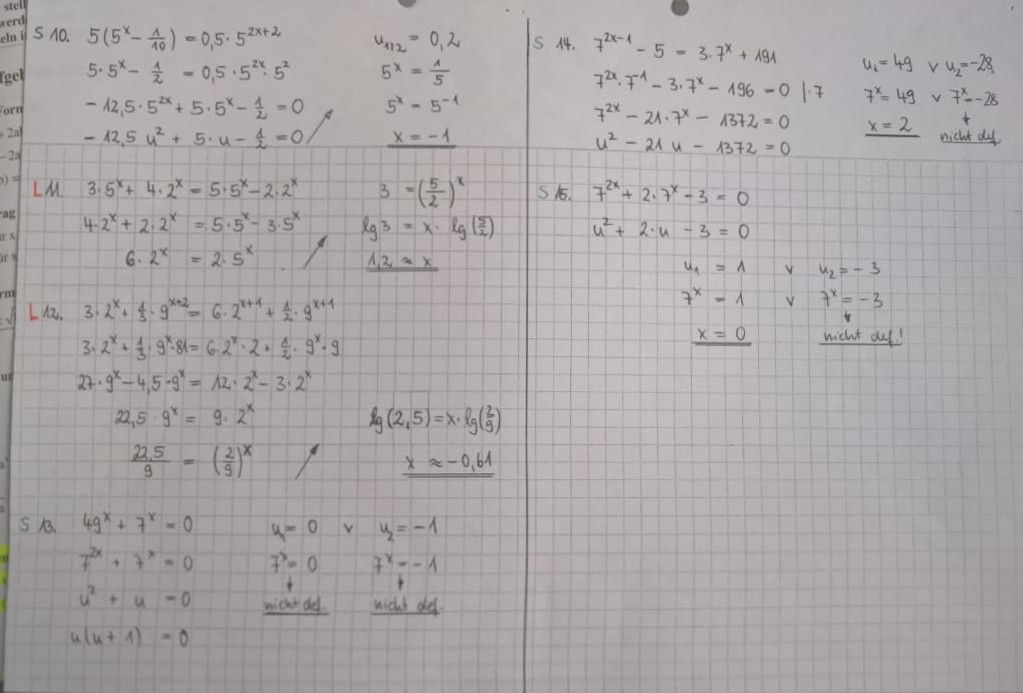 S 10. 5(5^x − 1/10) = 0,5 · 5^(2x+2)
5·5^x − 1/2 = 0,5 · 5^(2x) · 5^2
− 12,5 · 5^(2x) + 5 · 5^x − 1/2 = 0
− 12,5 u² + 5 · u − 1/2 = 0
u_1/2 = 0,2
5^x = 1/5
5^x = 5^(−1)
x = −1
L 11. 3·5^x + 4·2^x = 5·5^x − 2·2^x
4·2^x + 2·2^x = 5·5^x − 3·5^x
6·2^x = 2·5^x
3 = (5/2)^x
lg 3 = x · lg(5/2)
1,2 ≈ x
L 12. 3·2^x + 1/3 · 9^(x+2) = 6·2^(x+1) + 1/2 · 9^(x+1)
3·2^x + 1/3 · 9^x · 81 = 6·2^x · 2 + 1/2 · 9^x · 9
27·9^x − 4,5·9^x = 12·2^x − 3·2^x
22,5 · 9^x = 9 · 2^x
22,5/9 = (2/9)^x
lg(2,5) = x·lg(2/9)
x ≈ −0,61
S 13. 49^x + 7^x = 0
7^(2x) + 7^x = 0
u² + u = 0
u(u + 1) = 0
u₁ = 0 v u₂ = −1
7^x = 0 7^x = −1
nicht def. nicht def.
S 14. 7^(2x−1) − 5 = 3·7^x + 191
7^(2x) · 7^(−1) − 3·7^x − 196 = 0 |·7
7^(2x) − 21·7^x − 1372 = 0
u² − 21 u − 1372 = 0
u₁ = 49 v u₂ = −28
7^x = 49 v 7^x = −28
x = 2 nicht def.
S 15. 7^(2x) + 2·7^x − 3 = 0
u² + 2·u − 3 = 0
u₁ = 1 v u₂ = −3
7^x = 1 v 7^x = −3
x = 0 nicht def!